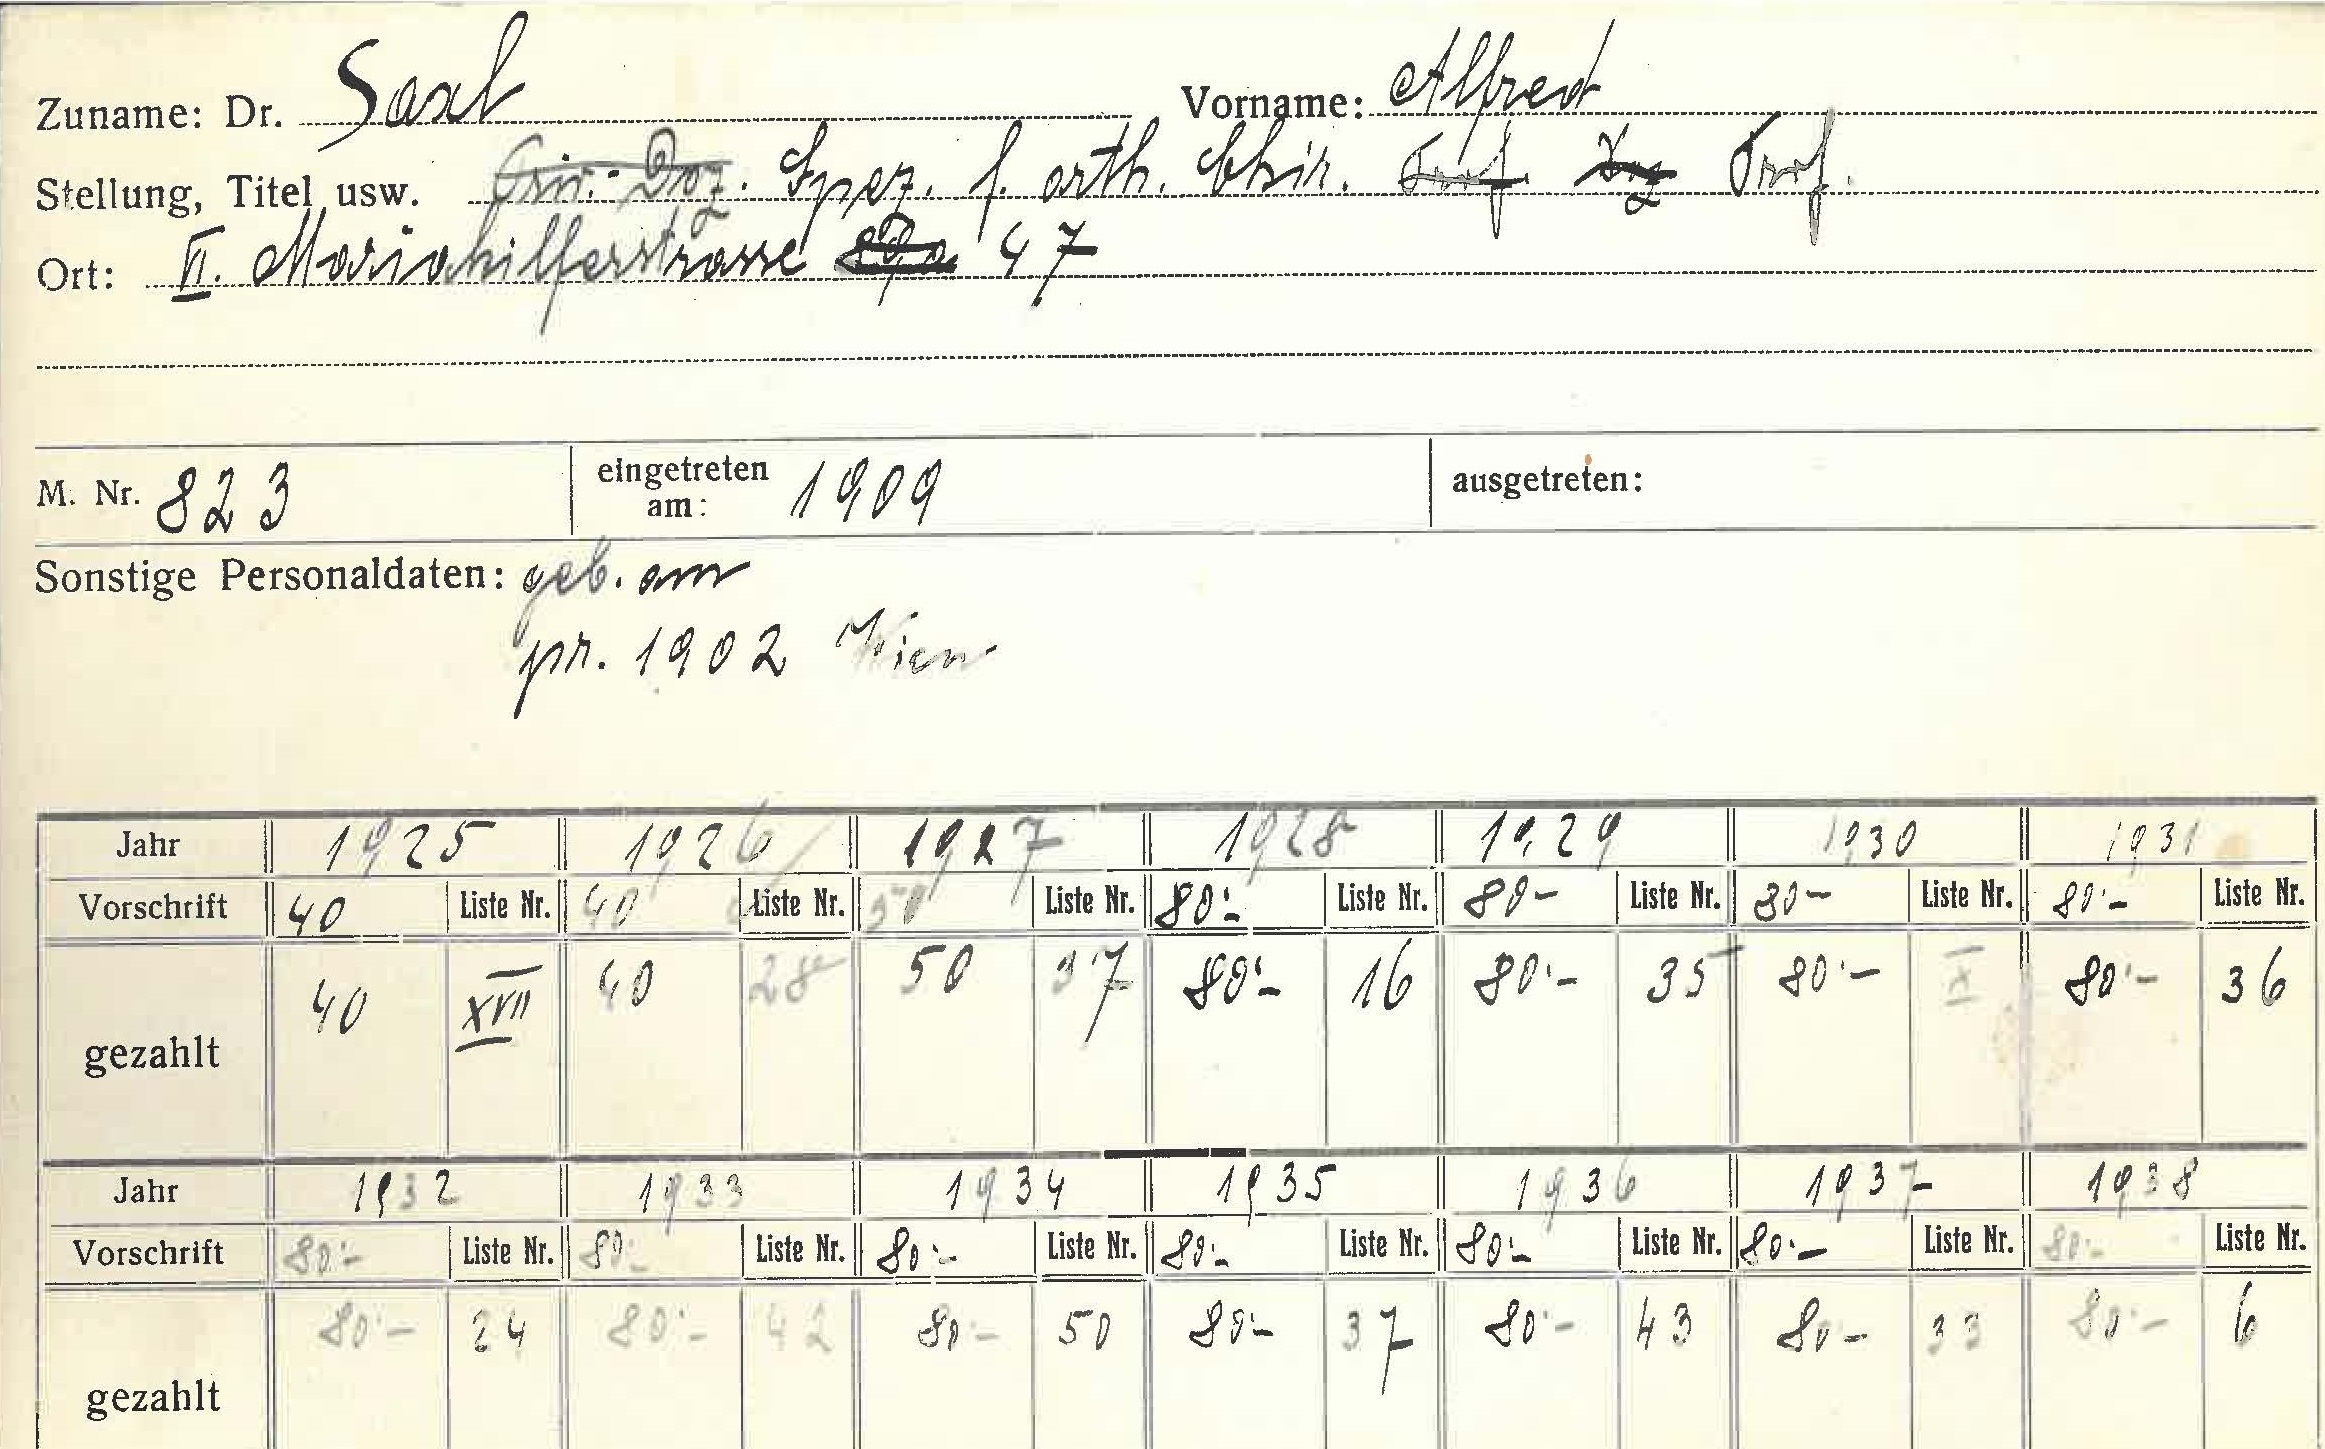 Zuname: Dr. Saxl Vorname: Alfred
Stellung, Titel usw. Priv.-Doz. Spez. f. orth. Chir. Prof. Prof.
Ort: VI. Mariahilferstrasse 47
M. Nr. 823 eingetreten am: 1909 ausgetreten:
Sonstige Personaldaten: geb. am
pr. 1902 Wien
Jahr 1925 1926 1927 1928 1929 1930 1931
Vorschrift 40 Liste Nr. 40 Liste Nr. 50 Liste Nr. 80·– Liste Nr. 80– Liste Nr. 80– Liste Nr. 80·– Liste Nr.
gezahlt 40 XVII 40 28 50 37 80·– 16 80·– 35 80·– X 80·– 36
Jahr 1932 1933 1934 1935 1936 1937 1938
Vorschrift 80·– Liste Nr. 80·– Liste Nr. 80·– Liste Nr. 80·– Liste Nr. 80·– Liste Nr. 80·– Liste Nr. 80·– Liste Nr.
gezahlt 80·– 24 80·– 42 80·– 50 80·– 37 80·– 43 80– 33 80·– 6